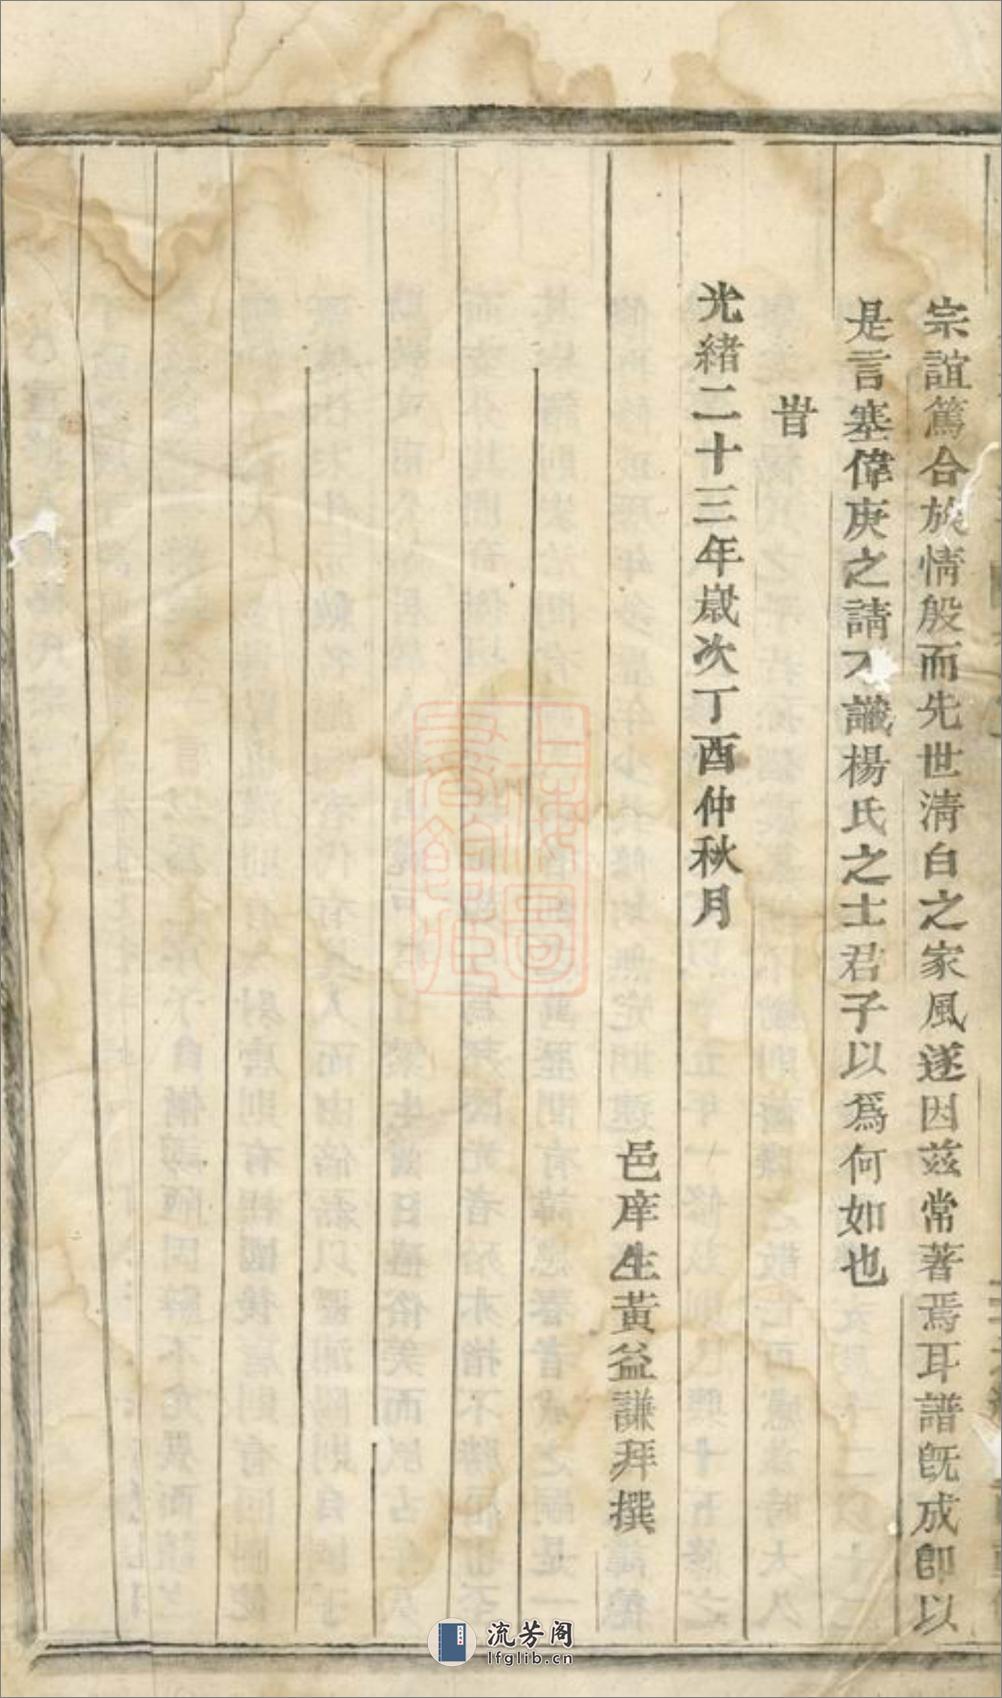 宗誼篤合族情殷而先世清白之家風遂因茲常著焉耳譜旣成卽以
是言塞偉庚之請不識楊氏之士君子以爲何如也
旹
光緒二十三年嵗次丁酉仲秋月
邑庠生黃益謙拜撰
流芳阁
lfglib.cn